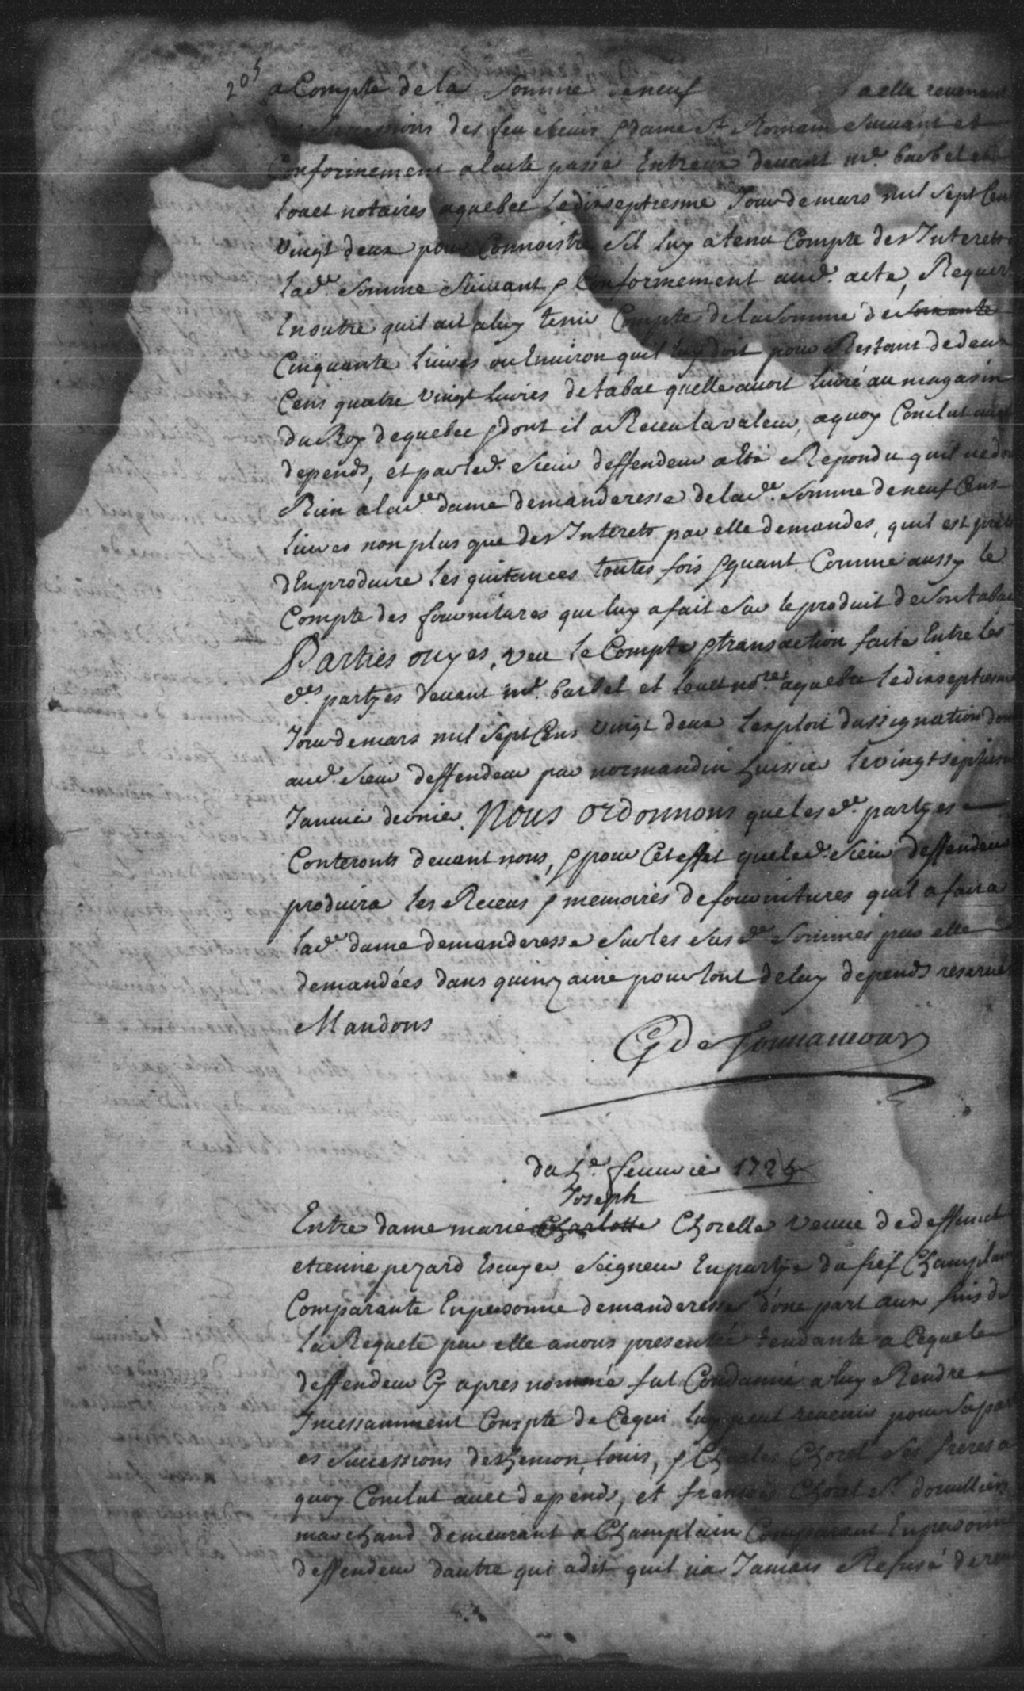 205
a Compte de la Somme de neuf a elle revenant
successions des feu sieur & dame St Romain suivant et
Conformement a lacte passé Entreux devant me. barbel et
louet notaires aquebec ledixseptiesme Jour demars mil sept Cens
vingt deux pour Connoistre sil luy atenu Compte des Interets
lade. somme suivant & Conformement aud. acte, Requert
Enoutre quil ait aluy tenir Compte delasomme de soixante
Cinquante livres ou Environ quil luy doit pour Restant dedeux
Cens quatre vingt livres detabac quelle avoit livré au magasin
du Roy dequebec & dont il a Receu lavaleur, aquoy Conclut avec
depends, et parled. sieur deffendeur a Eté Repondu quil nedoit
Rien alade dame demanderesse delade. somme deneuf Cens
livres non plus que des Interets par elle demandés, quil est prêt
dEnproduire les quitances toutes fois & quant Comme aussy le
Compte des fournitures que luy afait sur le produit de Sontabac
Parties ouyes, veu le Compte & transaction faite Entre les
des partyes devant me. barbel et louet nores aquebec ledixseptiesme
Jour demars mil sept Cens vingt deux lexploit dassignation donné
aud. sieur deffendeur par normandin huissier levingtseptiesme
Janvier dernier. Nous ordonnons que les des. partyes
Conteronts devant nous, & pour Cet effet queled. sieur deffendeur
produira les Receus & memoires de fournitures quil afait a
lade. dame demanderesse sur les sus des. sommes par elle
demandées dans quinzaine pour tout delay depends reservés
Mandons
G de Tonnancour
du 5e. fevrier 1725
Joseph
Entre dame marie Charlotte Chorelle veuve de deffunct
etienne pezard Escuyer seigneur Enpartye du fief Champlain
Comparante Enpersonne demanderesse d'une part aux fins de
la Requete par elle anous presentée tendante a Ceque le
deffendeur Cy apres nommé fut Condamné a luy Rendre
Incessamment Compte de Cequi luy peut revenir pour sapart
es successions de simon, louis, & Charles Chorel ses freres a
quoy Conclut avec depends, et françois Chorel Sr. dorvilliers
marchand demeurant a Champlain Comparant Enpersonne
deffendeur dautre qui adit quil na Jamais Refusé de ren